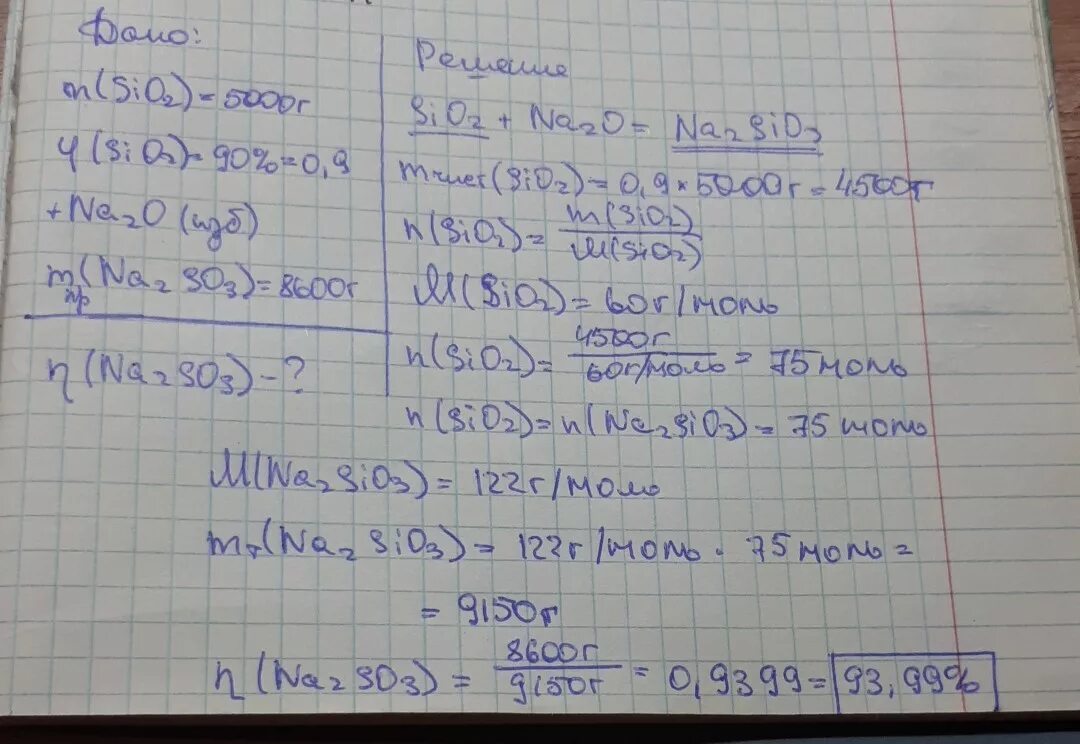 Дано:
m(SiO₂)=5000г
φ(SiO₂)=90%=0,9
+Na₂O (изб)
mпр(Na₂SO₃)=8600г
η(Na₂SO₃)-?
Решение
SiO₂ + Na₂O = Na₂SiO₃
mчист(SiO₂)=0,9×5000г=4500г
n(SiO₂)=m(SiO₂)/M(SiO₂)
M(SiO₂)=60г/моль
n(SiO₂)=4500г/60г/моль=75моль
n(SiO₂)=n(Na₂SiO₃)=75моль
M(Na₂SiO₃)=122г/моль
mт(Na₂SiO₃)=122г/моль·75моль=
=9150г
η(Na₂SO₃)=8600г/9150г=0,9399=93,99%